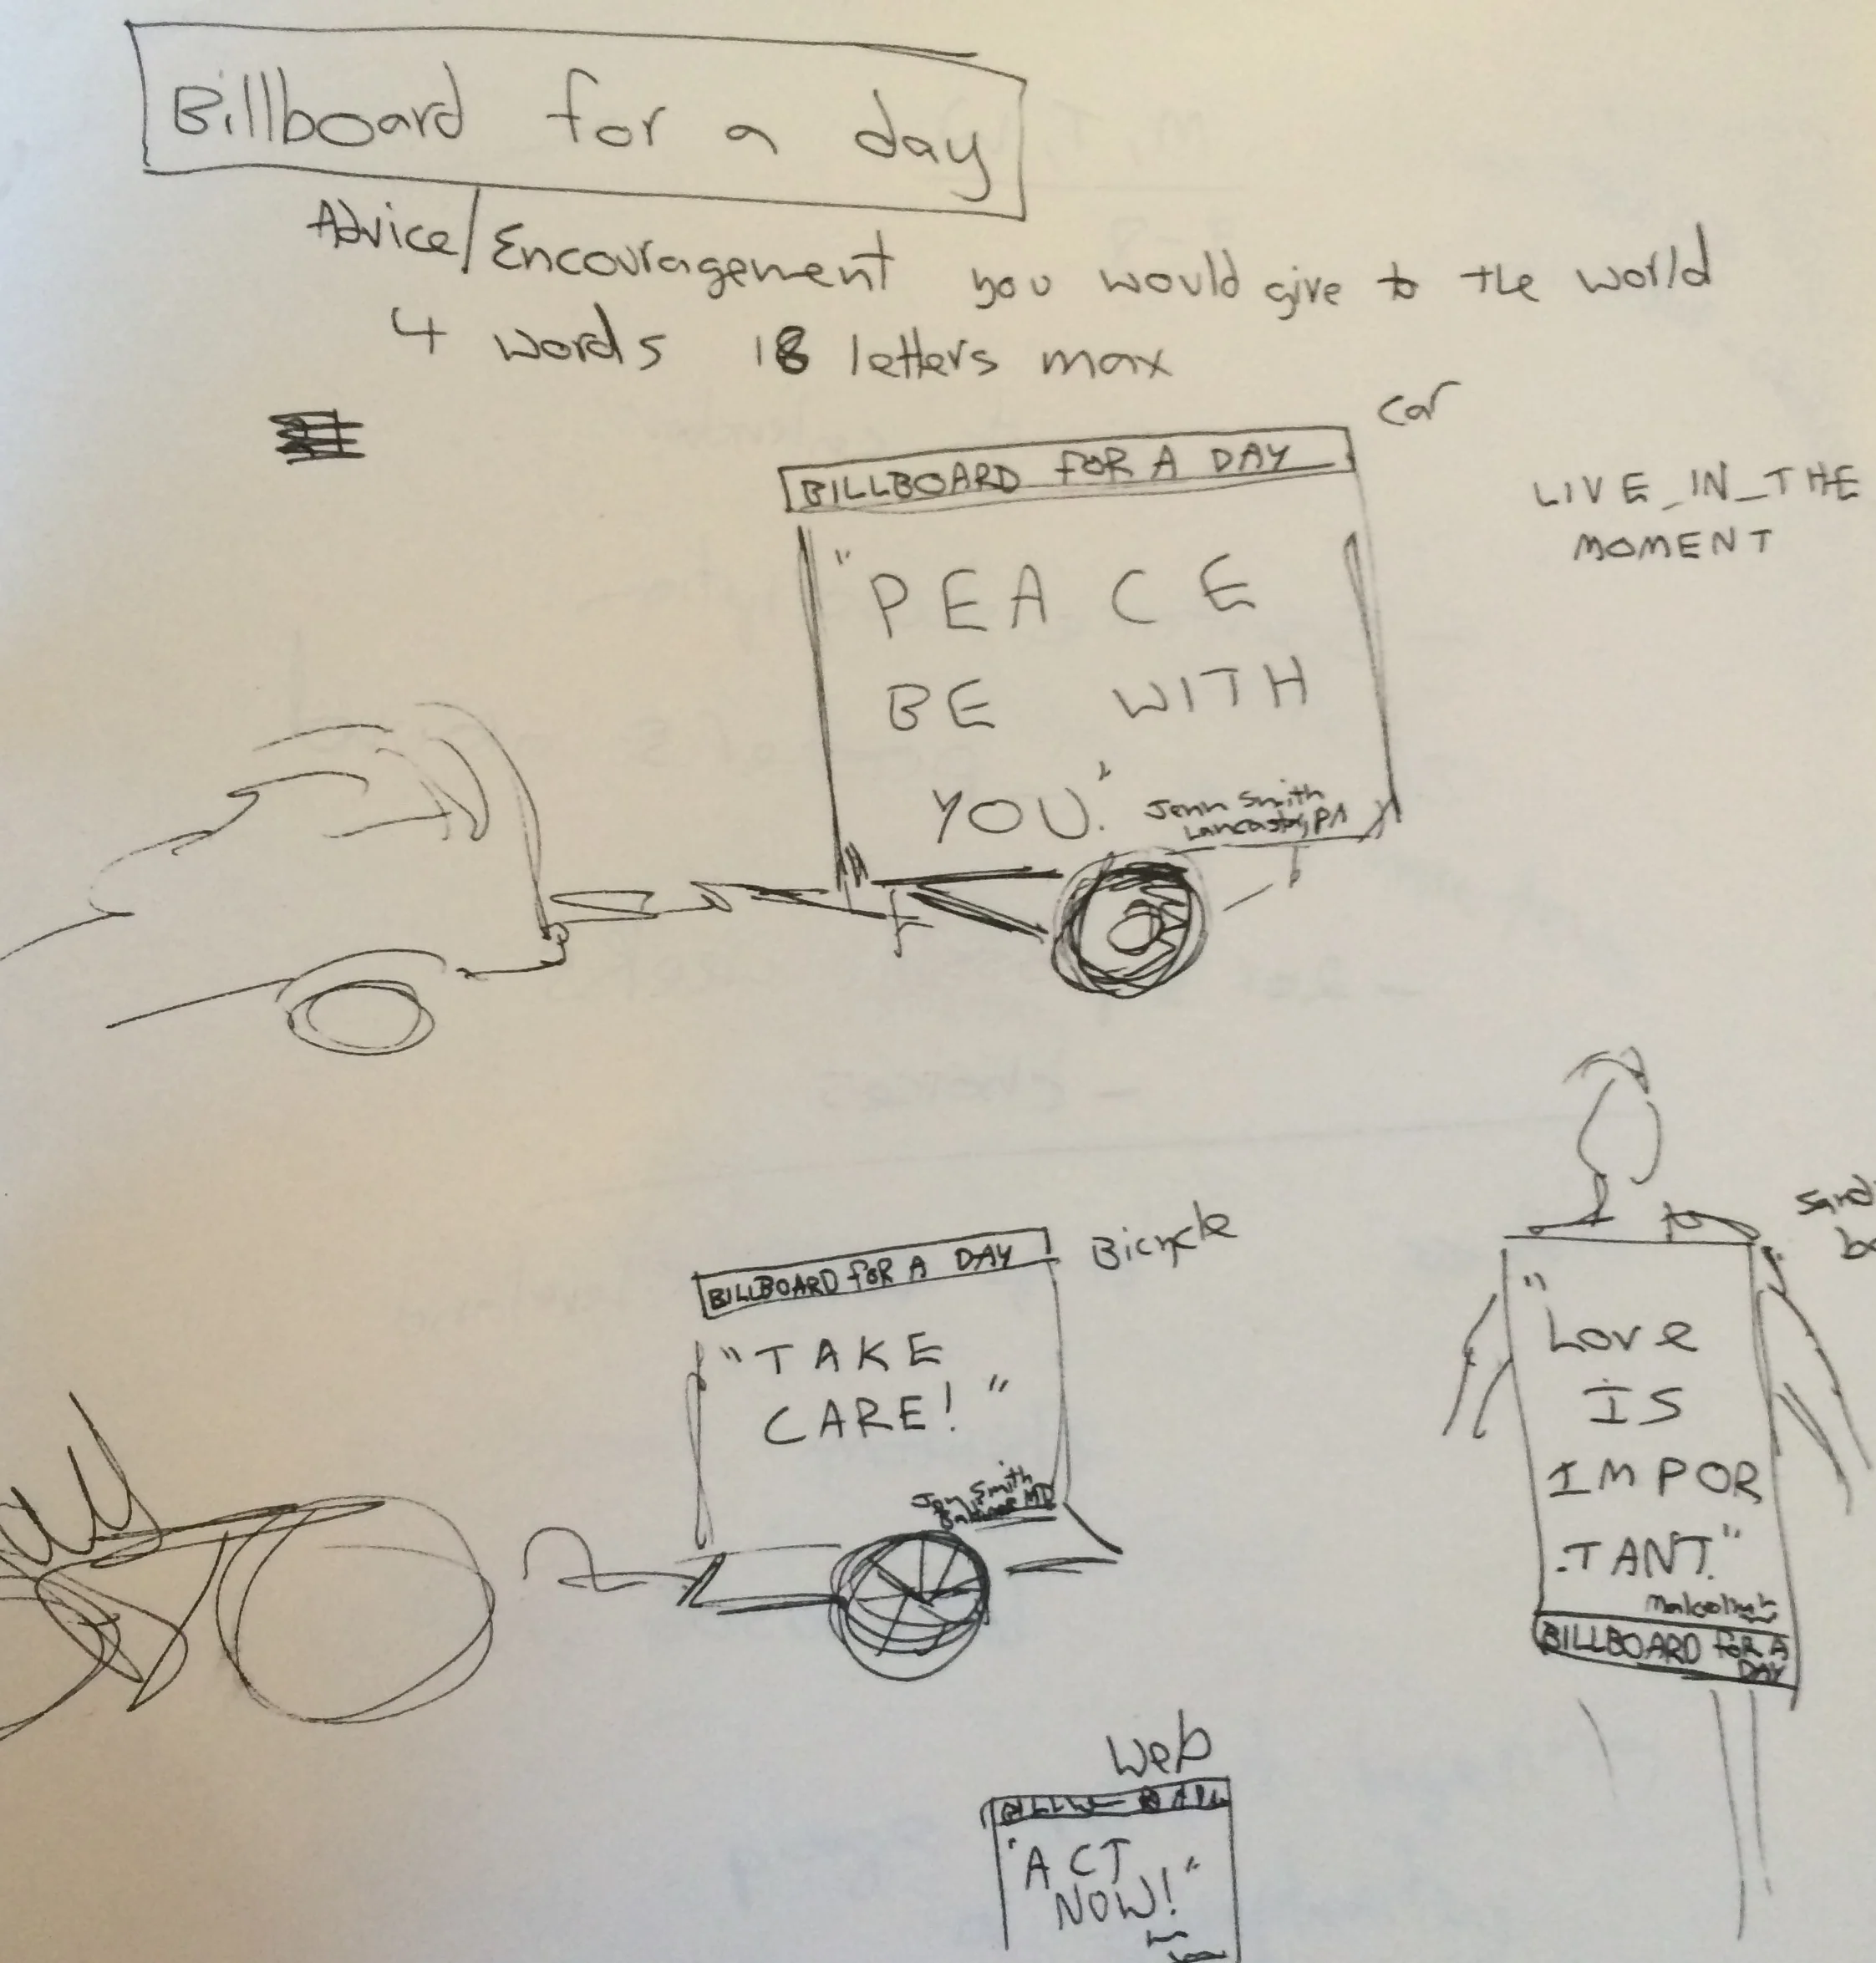 Billboard for a day
Advice/Encouragement you would give to the world
4 words 18 letters max
car
BILLBOARD FOR A DAY
"PEACE
BE WITH
YOU."
Jenn Smith
Lancaster, PA
LIVE_IN_THE
MOMENT
Bicycle
BILLBOARD FOR A DAY
"TAKE
CARE!"
Jon Smith
Baltimore MD
"Love
IS
IMPOR
-TANT."
BILLBOARD FOR A
DAY
Web
"ACT
NOW!"